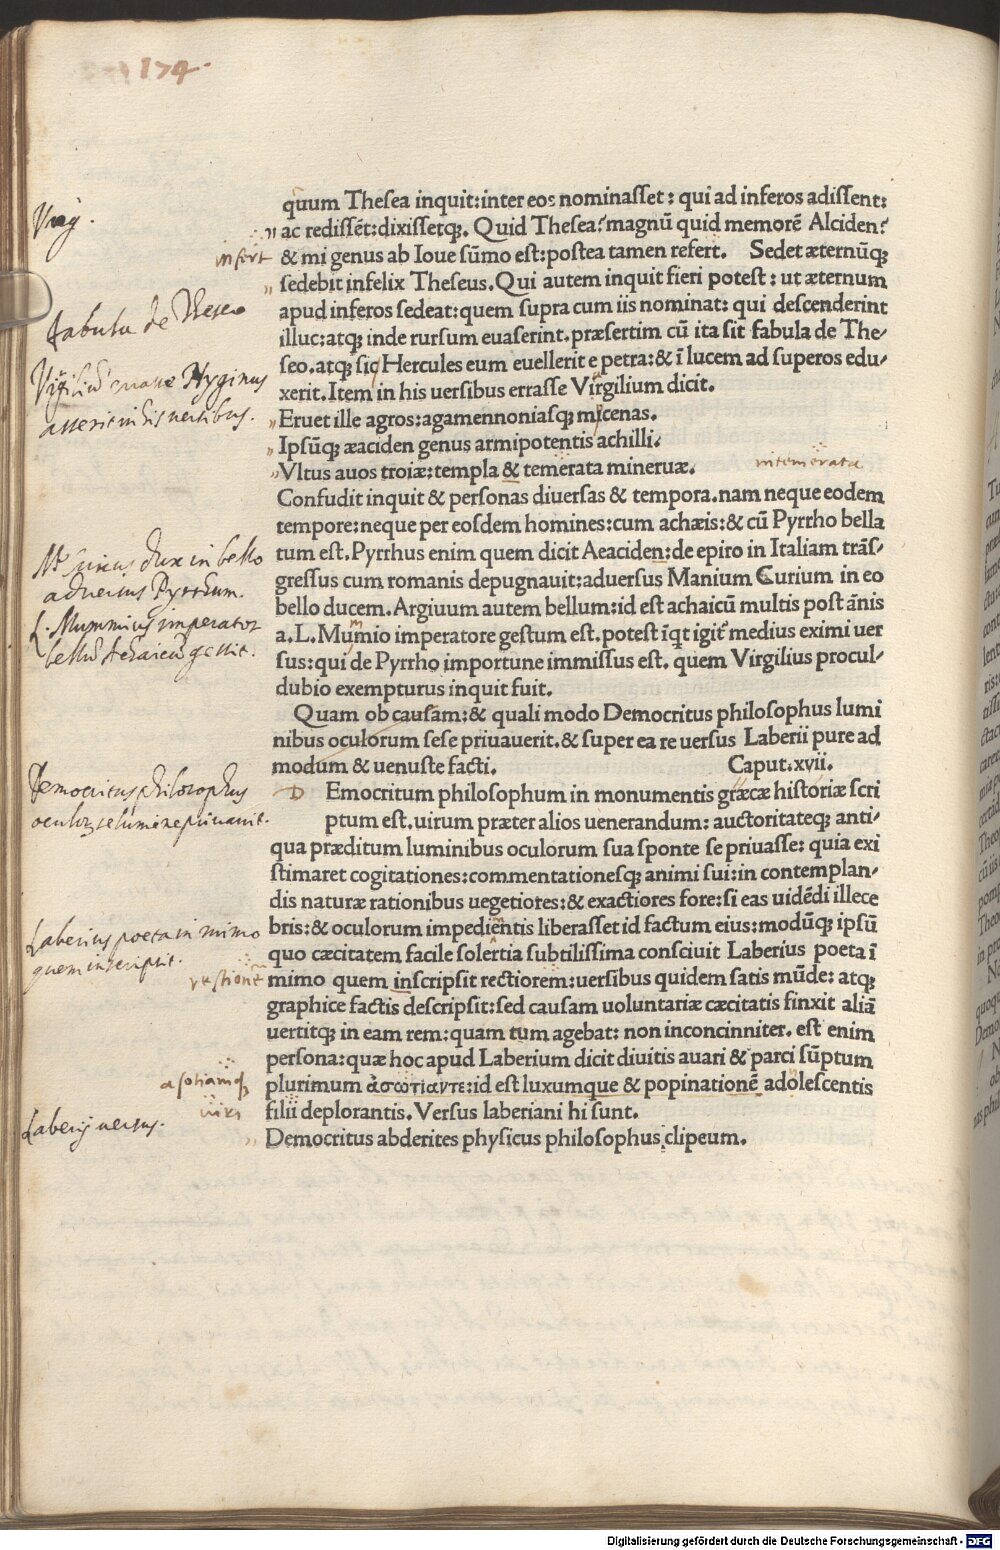 174.
quum Thesea inquit:inter eos nominasset: qui ad inferos adissent:
Virg.
ac redissēt:dixissetqꝫ. Quid Thesea? magnū quid memorē Alciden?
infert
& mi genus ab Ioue sūmo est:postea tamen refert. Sedet æternūqꝫ
sedebit infelix Theseus. Qui autem inquit fieri potest: ut æternum
Fabula de Theseo
apud inferos sedeat:quem supra cum iis nominat: qui descenderint
illuc:atqꝫ inde rursum euaserint. præsertim cū ita sit fabula de The-
seo. atqꝫ siq Hercules eum euellerit e petra:& ī lucem ad superos edu-
Hyginus
xerit. Item in his uersibus errasse Virgilium dicit.
asserit in his versibus.
Eruet ille agros:agamennoniasqꝫ micenas.
Ipsūqꝫ æaciden genus armipotentis achilli.
Vltus auos troiæ:templa & temerata mineruæ.
intemerata
Confudit inquit & personas diuersas & tempora. nam neque eodem
tempore:neque per eosdem homines:cum achæis:& cū Pyrrho bella
tum est. Pyrrhus enim quem dicit Aeaciden:de epiro in Italiam trās-
dux in bello
gressus cum romanis depugnauit:aduersus Manium Curium in eo
aduersus Pyrrhum.
bello ducem. Argiuum autem bellum:id est achaicū multis post ānis
L. Mummius imperator
a. L. Mumio imperatore gestum est. potest īqt igit̄ medius eximi uer
bellū Achaicū gessit.
sus:qui de Pyrrho importune immissus est. quem Virgilius procul-
dubio exempturus inquit fuit.
Quam ob causam:& quali modo Democritus philosophus lumi
nibus oculorum sese priuauerit.& super ea re uersus Laberii pure ad
modum & uenuste facti. Caput.xvii.
Democritus philosophus
D Emocritum philosophum in monumentis græcæ historiæ scri
ptum est. uirum præter alios uenerandum: auctoritateqꝫ anti-
qua præditum luminibus oculorum sua sponte se priuasse: quia exi
stimaret cogitationes:commentationesqꝫ animi sui:in contemplan-
dis naturæ rationibus uegetiores:& exactiores fore:si eas uidēdi illece
bris:& oculorum impedientis liberasset id factum eius:modūqꝫ ipsū
Laberius poeta in mimo
quo cæcitatem facile solertia subtilissima consciuit Laberius poeta ī
quem inscripsit.
restionē
mimo quem inscripsit rectiorem:uersibus quidem satis mūde: atqꝫ
graphice factis descripsit:sed causam uoluntariæ cæcitatis finxit aliā
uertitqꝫ in eam rem:quam tum agebat: non inconcinniter. est enim
persona:quæ hoc apud Laberium dicit diuitis auari & parci sūptum
plurimum ἀσωτιαντε:id est luxumque & popinationē adolescentis
filii deplorantis. Versus laberiani hi sunt.
Laberij uersus.
Democritus abderites physicus philosophus clipeum.
Digitalisierung gefördert durch die Deutsche Forschungsgemeinschaft - DFG